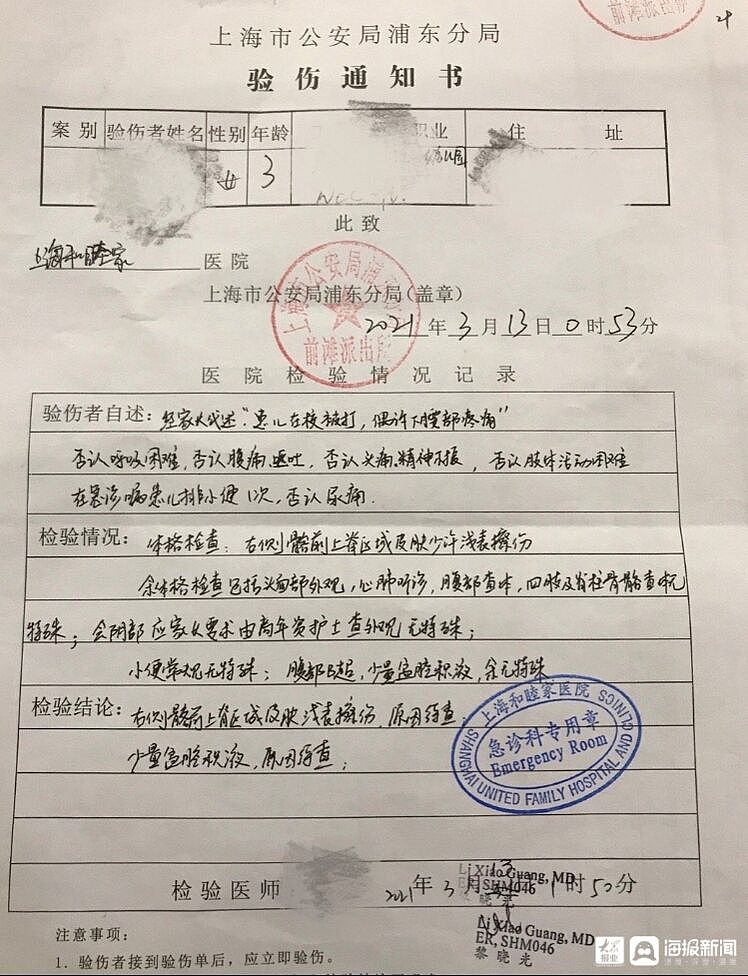 前滩派出所
上海市公安局浦东分局
验伤通知书
案别 验伤者姓名 性别 年龄 职业 住址
女 3
此致
上海和睦家 医院
上海市公安局浦东分局(盖章)
上海市公安局浦东分局
前滩派出所
2021年3月13日0时53分
医院检验情况记录
验伤者自述: 经家长代述"患儿在校被打,偶诉下腹部疼痛"
否认呼吸困难,否认腹痛、呕吐,否认头痛、精神不振,否认肢体活动困难
在急诊 患儿排小便1次,否认尿痛.
检验情况: 体格检查: 右侧髂前上脊区域皮肤少许浅表擦伤
余体格检查包括头面部外观,心肺听诊,腹部查体,四肢及脊柱骨骼查体无
特殊; 会阴部应家长要求由高年资护士查外观无特殊;
小便常规无特殊; 腹部B超,少量盆腔积液,余无特殊
检验结论: 右侧髂前上脊区域皮肤浅表擦伤,原因待查;
少量盆腔积液,原因待查;
上海和睦家医院
急诊科专用章
Emergency Room
SHANGHAI UNITED FAMILY HOSPITAL AND CLINICS
检验医师 2021年3月13 1时50分
Li Xiao Guang, MD
ER, SHM046
黎晓光
Li Xiao Guang, MD
ER, SHM046
黎晓光
注意事项:
1. 验伤者接到验伤单后,应立即验伤。
大众报业 海报新闻